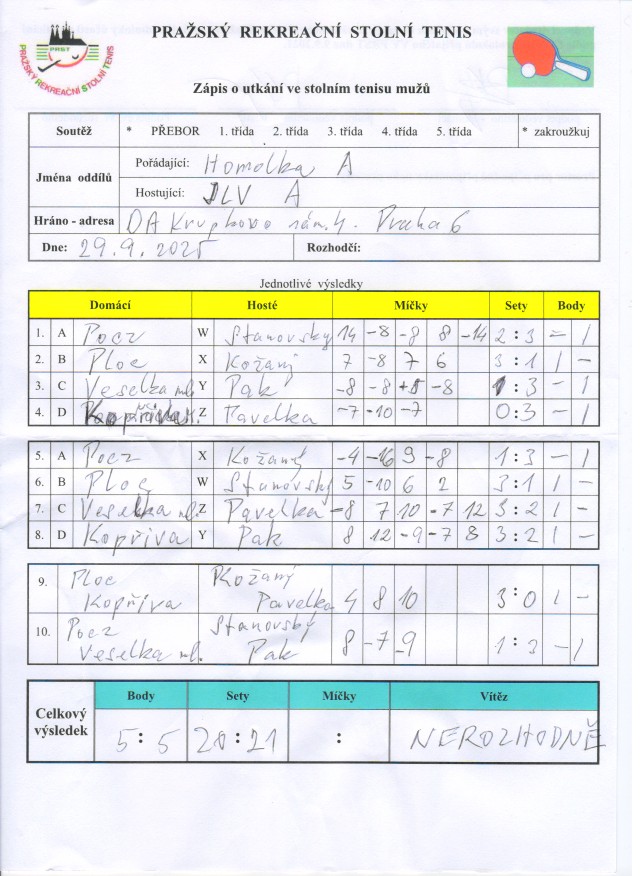 PRAŽSKÝ REKREAČNÍ STOLNÍ TENIS
PRST
PRAŽSKÝ REKREAČNÍ STOLNÍ TENIS
Zápis o utkání ve stolním tenisu mužů
Soutěž * PŘEBOR 1. třída 2. třída 3. třída 4. třída 5. třída * zakroužkuj
Jména oddílů
Pořádající: Homolka A
Hostující: JLV A
Hráno - adresa DA Krupkovo nám. 4. Praha 6
Dne: 29.9.2025 Rozhodčí:
Jednotlivé výsledky
Domácí Hosté Míčky Sety Body
1. A Pocz W Stanovský 14 -8 -8 8 -14 2:3 - 1
2. B Ploc X Kožaný 7 -8 7 6 3:1 1 -
3. C Veselka ml. Y Pak -8 -8 +8 -8 1:3 - 1
4. D Kopřiva Z Pavelka -7 -10 -7 0:3 - 1
5. A Pocz X Kožaný -4 -16 9 -8 1:3 - 1
6. B Ploc W Stanovský 5 -10 6 2 3:1 1 -
7. C Veselka ml. Z Pavelka -8 7 10 -7 12 3:2 1 -
8. D Kopřiva Y Pak 8 12 -9 -7 8 3:2 1 -
9. Ploc Kožaný
Kopřiva Pavelka 4 8 10 3:0 1 -
10. Pocz Stanovský
Veselka ml. Pak 8 -7 -9 1:3 - 1
Celkový výsledek
Body Sety Míčky Vítěz
5:5 20:21 : NEROZHODNĚ